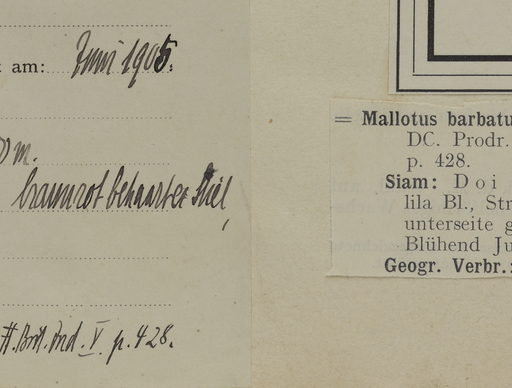 am: Juni 1905.
m.
braunrot behaarter Stiel,
Fl. Brit. Ind. V p. 428.
= Mallotus barbatu
DC. Prodr.
p. 428.
Siam: Doi
lila Bl., Str
unterseite g
Blühend Ju
Geogr. Verbr.: